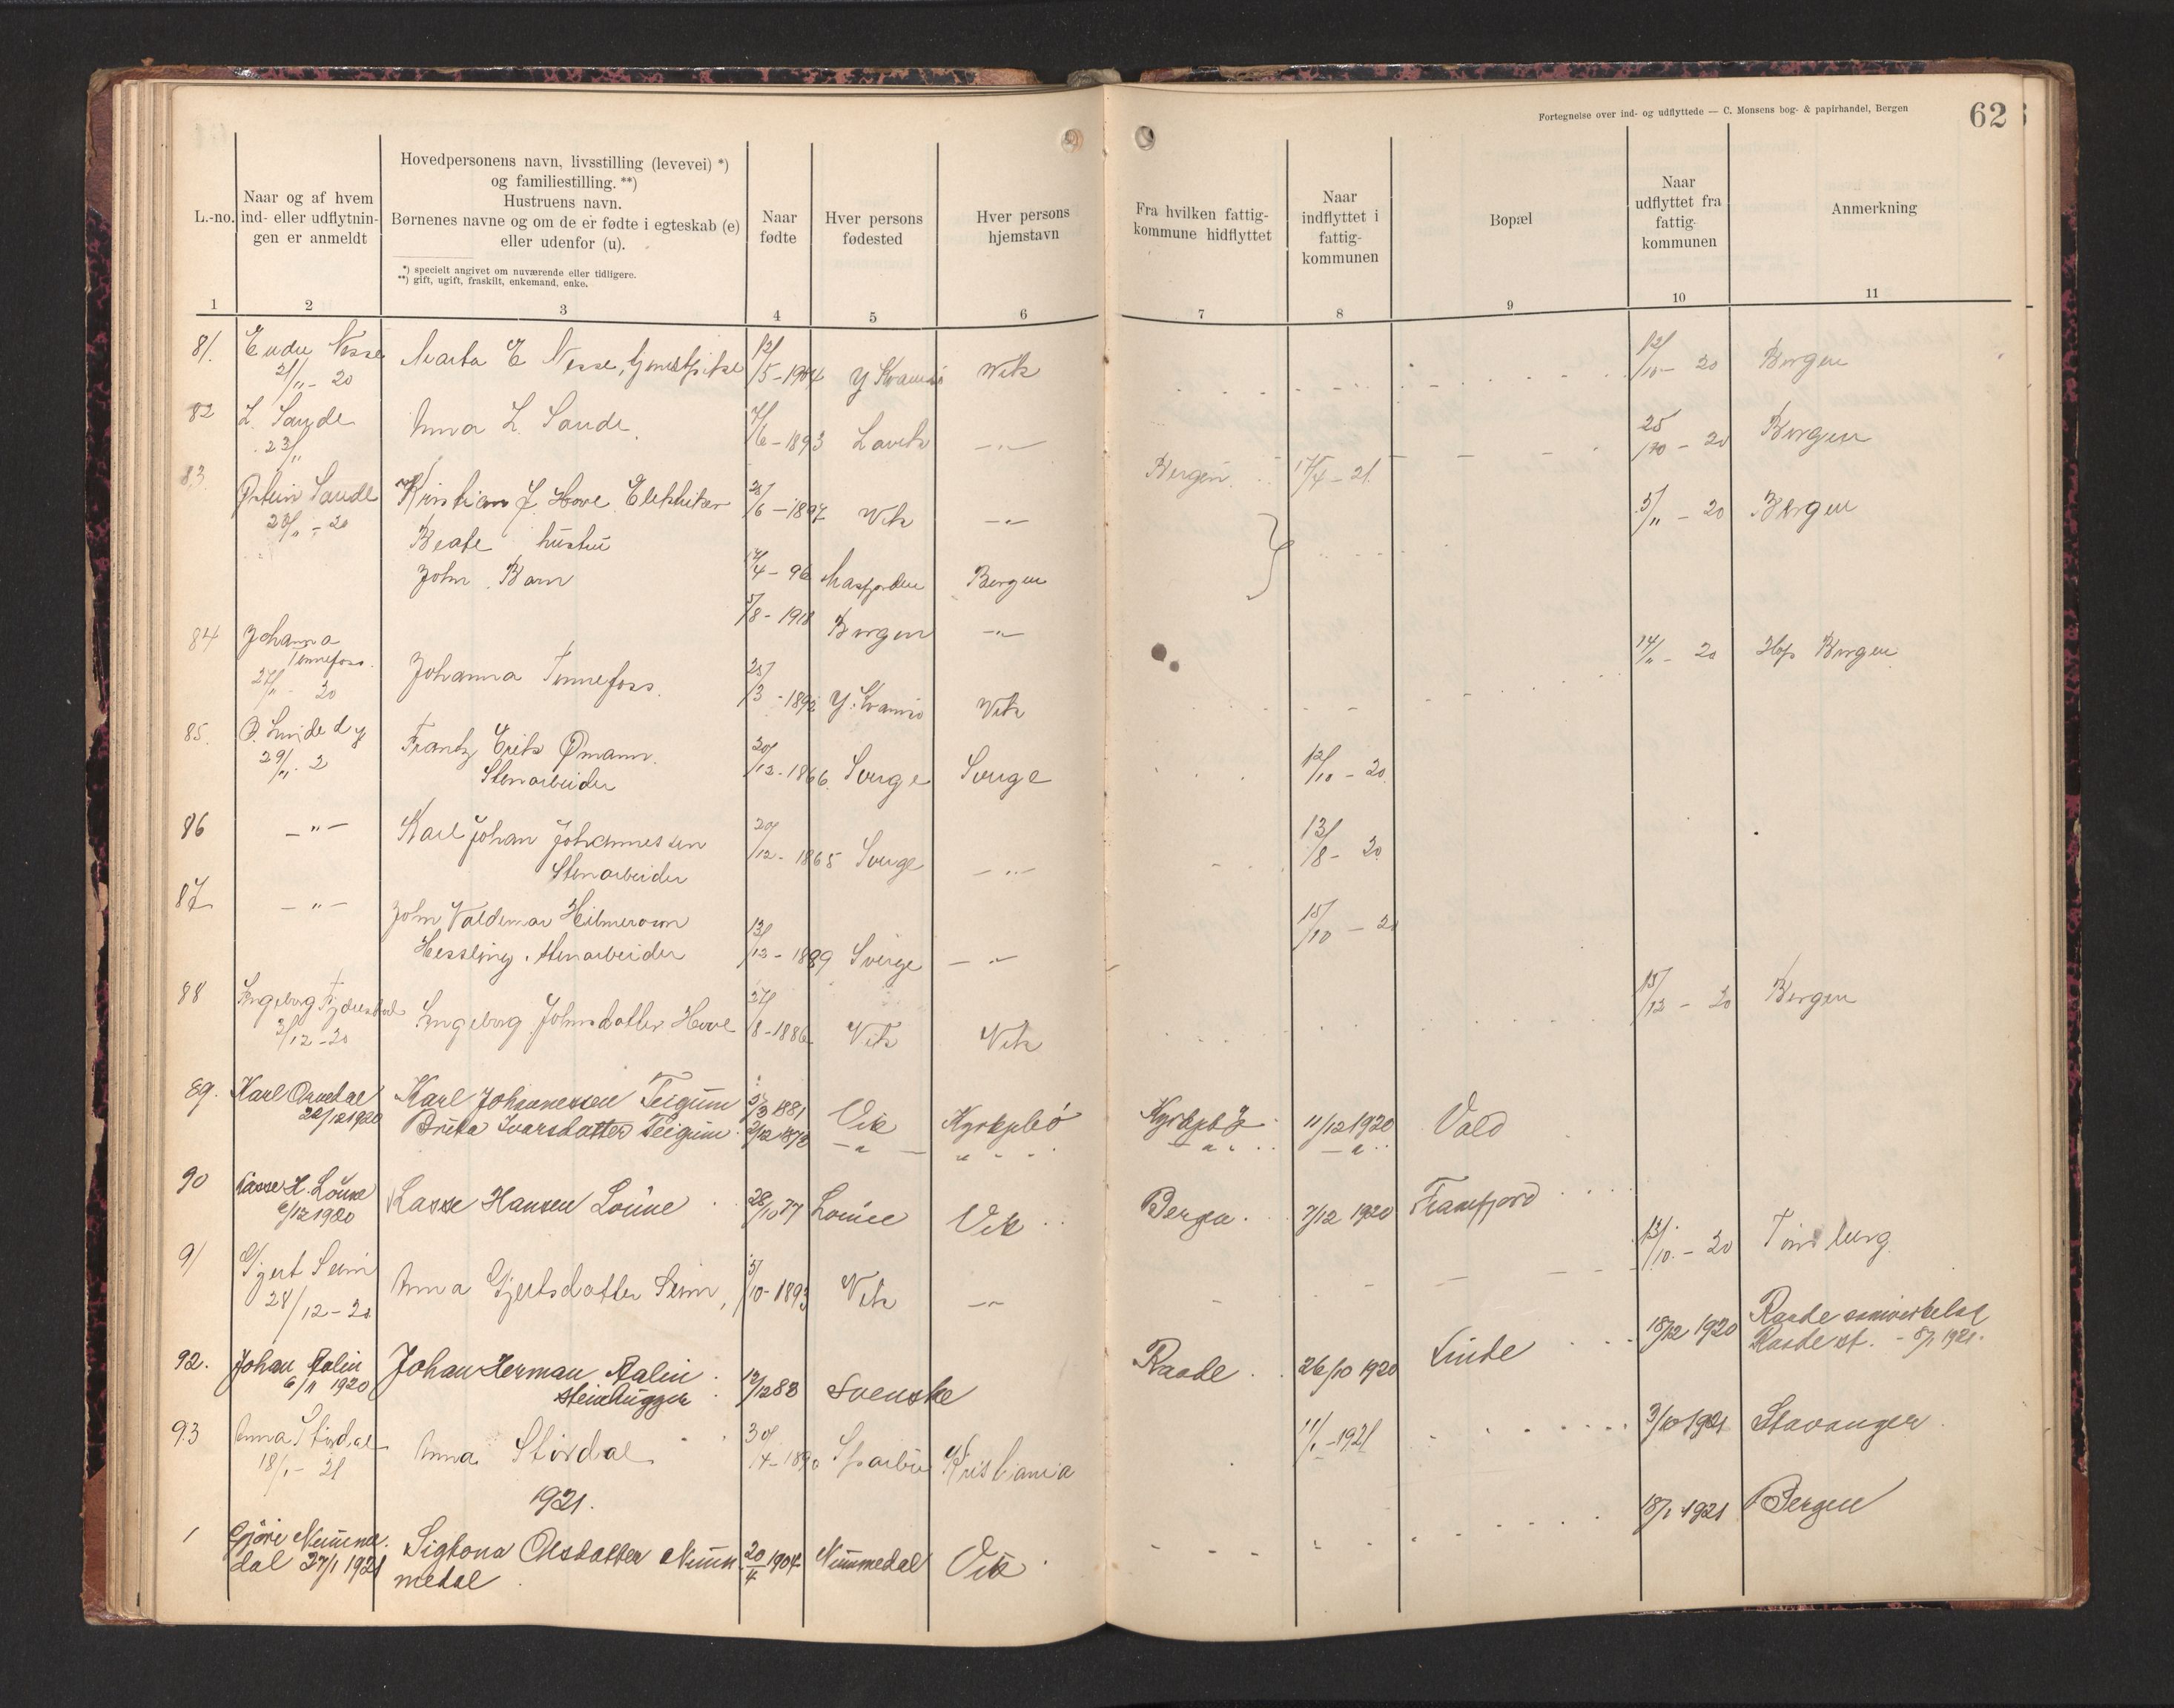 Fortegnelse over ind- og udflyttede — C. Monsens bog- & papirhandel, Bergen
62
L.-no.
Naar og af hvem
ind- eller udflytnin-
gen er anmeldt
Hovedpersonens navn, livsstilling (levevei) *)
og familiestilling. **)
Hustruens navn.
Børnenes navne og om de er fødte i egteskab (e)
eller udenfor (u).
*) specielt angivet om nuværende eller tidligere.
**) gift, ugift, fraskilt, enkemand, enke.
Naar
fødte
Hver persons
fødested
Hver persons
hjemstavn
Fra hvilken fattig-
kommune hidflyttet
Naar
indflyttet i
fattig-
kommunen
Bopæl
Naar
udflyttet fra
fattig-
kommunen
Anmerkning
1 2 3 4 5 6 7 8 9 10 11
81. Endre Nesse Marta E Nesse, 12/5-1904 Y Kvamsø Wik 12/10- 20 Bergen
21/11- 20
82 L. Sande Anna L. Sande 7/6-1893 Lavik -"- 25/10 - 20 Bergen
23/11
83. Østein Sande Kristian J. Hove Elektriker 28/6-1897 Vik -"- Bergen 17/4-21 5/11 - 20 Bergen
23/11 - 20
Beate hustru 14/4- 96 Masfjorden Bergen
John Barn 5/8-1918 Bergen -"-
84 Johanna
Tennefoss.
27/11- 20
Johanna Tennefoss. 25/3-1892 Y. Kvamsø Wik 14/11- 20 Hop Bergen
85. O. Linde d y Frantz Erik Ømann. 20/12-1866. Sverge Sverge 12/10 - 20
29/11. 2 Stenarbeider
86 -"- Karl Johan Johannessen 20/12- 1865 Sverge -"- 13/8- 20
Stenarbeider
87 -"- John Valdemar Hilmerson
Hessling. stenarbeider 13/12- 1889 Sverige -"- 15/10 - 20
88 Ingeborg Ingeborg Johnsdatter Hove 27/8-1886 Vik Vik 15/12 - 20 Bergen
2/12-20
89. Karl Karl Johannessen Teigum 5/3 1881 Vik Kyrkjebø Kyrkjebø 11/12 1920 Vold
22/12 1920 Brita Ivarsdatter Teigum 2/12 1878
90 Lasse H. Loune Lasse Hansen Loune 28/10 77 Loune Vik Bergen 7/12 1920 Framfjord
6/12 1920
91 Gjert Seim Anna Gjertsdatter Seim, 5/10-1893 Vik -"- 12/10.-20 Tønsberg
28/12-20
92. Johan Ralin Johan Herman Ralin 12/12 88 svenske Raade 26/10 1920 Linde 18/12 1920 Raade
6/11 1920 steinhugger Raade st. - 8/1 1921.
93 Anna Størdal Anna Størdal 30/4-1890 Sparbu Kristiania 11/1-1921 3/10 1921 Stavanger
18/1- 21
1921.
1 Gjøri Numme-
dal 27/1 1921
Sigtona Olsdatter Num-
medal
20/4 1904 Nummedal Vik 18/1 1921 Bergen